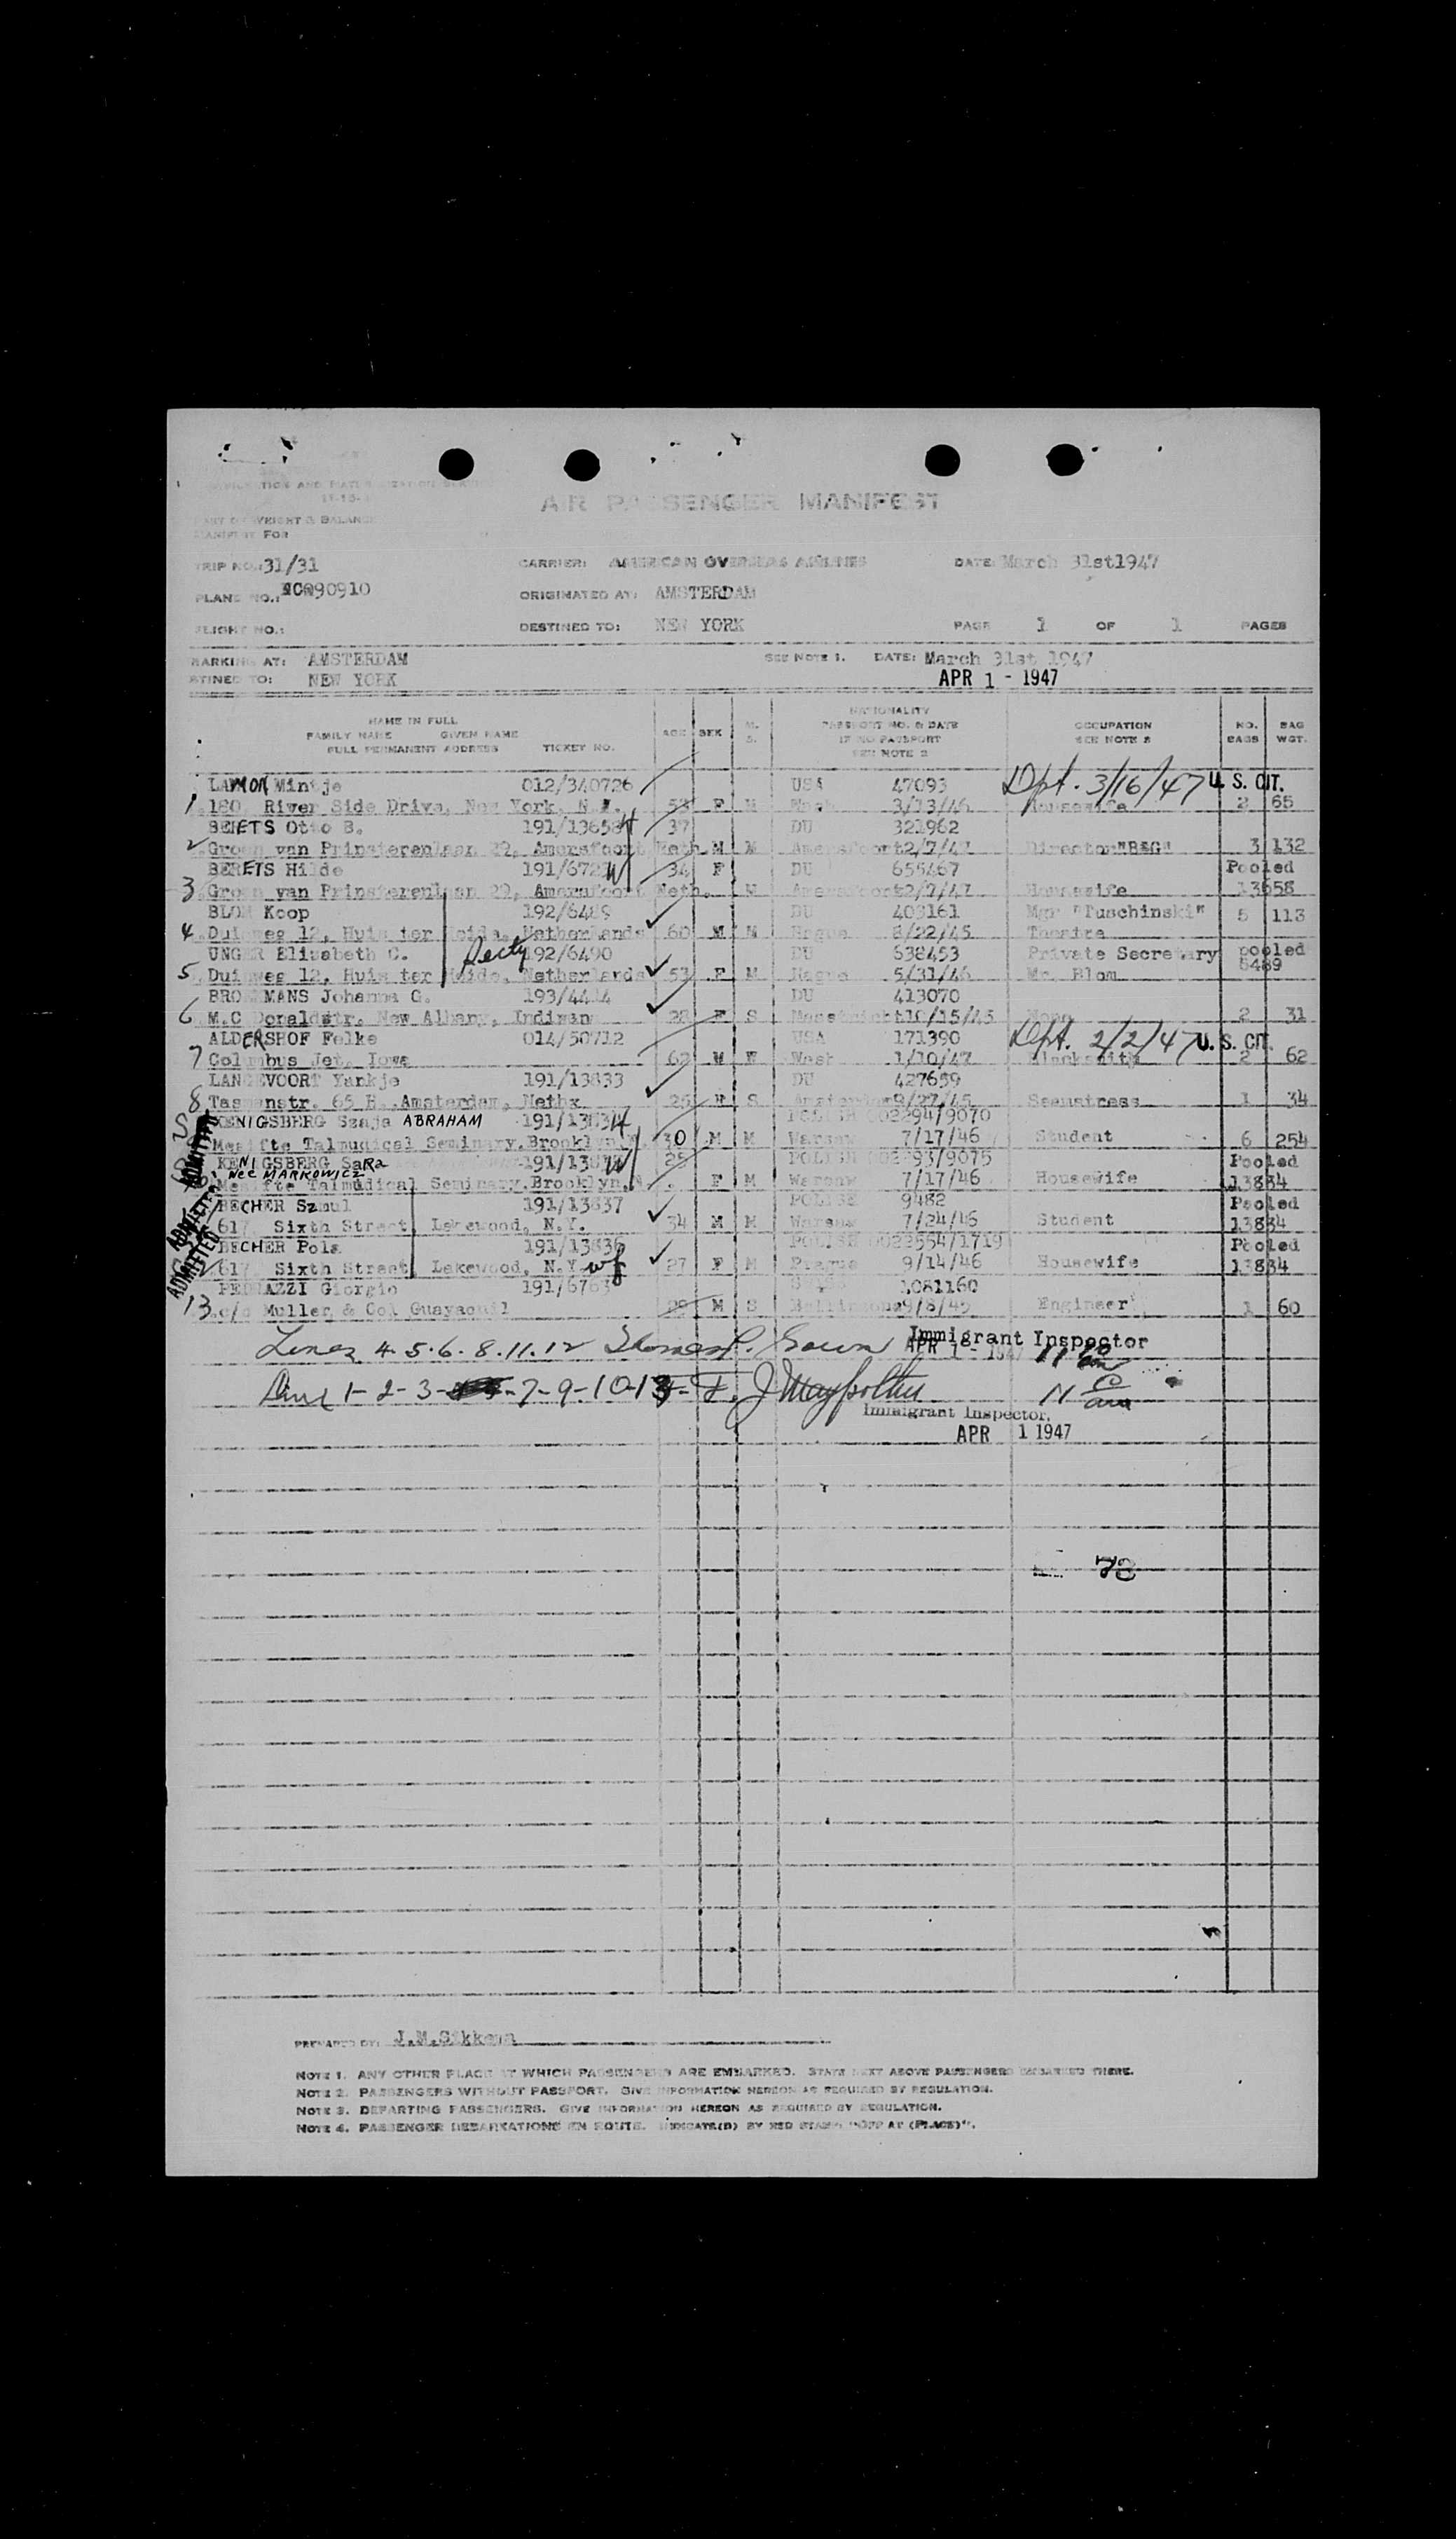 AIR PASSENGER MANIFEST
TRIP NO.: 31/31 CARRIER: AMERICAN OVERSEAS AIRLINES DATE: March 31st1947
PLANE NO.: 90910 ORIGINATED AT: AMSTERDAM
FLIGHT NO.: DESTINED TO: NEW YORK PAGE 1 OF 1 PAGES
BARKING AT: AMSTERDAM SEE NOTE 1. DATE: March 31st 1947
STINED TO: NEW YORK APR 1 - 1947
NAME IN FULL
FAMILY NAME GIVEN NAME
FULL PERMANENT ADDRESS TICKET NO. AGE SEX M. S. NATIONALITY PASSPORT NO. & DATE IF NO PASSPORT SEE NOTE 2 OCCUPATION SEE NOTE 3 NO. BAGS BAG WGT.
Mintje 012/340726 USA 47093 Dpt. 3/16/47 U. S. CIT.
1. 180 River Side Drive, New York, N.Y. 53 F M Wash 3/13/46 Housewife 2 65
BEHETS Otto B. 191/13658 H 37 DU 321962
2. Groen van Prinsterenlaan 29, Amersfoort Neth. M M Amersfoort 2/7/47 Director 3 132
BEHETS Hilde 191/672 W 34 F DU 655467 Pooled
3. Groen van Prinsterenlaan 29, Amersfoort Neth. M Amersfoort 2/7/47 Housewife 13658
BLOM Koop 192/6489 DU 403161 Mgr "Tuschinski" 5 113
4. Duinweg 12, Huis ter Heide, Netherlands 60 M M Hague 8/22/45 Theatre
UNGER Elizabeth C. Secty 192/6490 DU 638453 Private Secretary pooled
5. Duinweg 12, Huis ter Heide, Netherlands 53 F M Hague 5/31/46 Mr. Blom 6489
BROEKMANS Johanna G. 193/4414 DU 413070
6 M.C Donaldstr. New Albany, Indiana 28 F S Maastricht 10/15/45 None 2 31
ALDERSHOF Folke 014/50712 USA 171390 Dpt. 2/2/47 U. S. CIT.
7 Columbus Jct. Iowa 62 M Wash 1/10/47 Blacksmith 2 62
LANGEVOORT Yankje 191/13833 DU 427659
8. Tasmanstr. 65 H. Amsterdam, Neth 25 F S Amsterdam 9/27/45 Seamstress 1 34
KENIGSBERG Szaja ABRAHAM 191/13834 H POLISH 002294/9070
Mesifte Talmudical Seminary. Brooklyn, 30 M M Warsaw 7/17/46 Student 6 254
KENIGSBERG SaRa 191/138 W 25 POLISH 002293/9075 Pooled
Nee MARKOWICZ
Mesifte Talmudical Seminary. Brooklyn, F M Warsaw 7/17/46 Housewife 13834
BECHER Szmul 191/13837 POLISH 9482 Pooled
617 Sixth Street, Lakewood, N.Y. 34 M M Warsaw 7/24/46 Student 13834
BECHER Pola 191/13836 POLISH 0022554/1719 Pooled
ADMITTED 617 Sixth Street, Lakewood, N.Y. wf 27 F M Prague 9/14/46 Housewife 13834
PEDRAZZI Giorgio 191/6763 SWISS 1081160
13. c/o Muller & Co. Guayaquil 29 M S Bellinzona 9/8/45 Engineer 1 60
Lines 4.5.6.8.11.12 Thomas P. Immigrant Inspector
APR 1 - 1947
Lines 1-2-3-7-9-10-13-
Immigrant Inspector.
APR 1 1947
78
PREPARED BY: J.M.Sikkema
NOTE 1. ANY OTHER PLACE AT WHICH PASSENGERS ARE EMBARKED. STATE NEXT ABOVE PASSENGERS EMBARKED THERE.
NOTE 2. PASSENGERS WITHOUT PASSPORT. GIVE INFORMATION HEREON AS REQUIRED BY REGULATION.
NOTE 3. DEPARTING PASSENGERS. GIVE INFORMATION HEREON AS REQUIRED BY REGULATION.
NOTE 4. PASSENGER DEBARKATIONS EN ROUTE. INDICATE(D) BY RED STAMP "OFF AT (PLACE)".